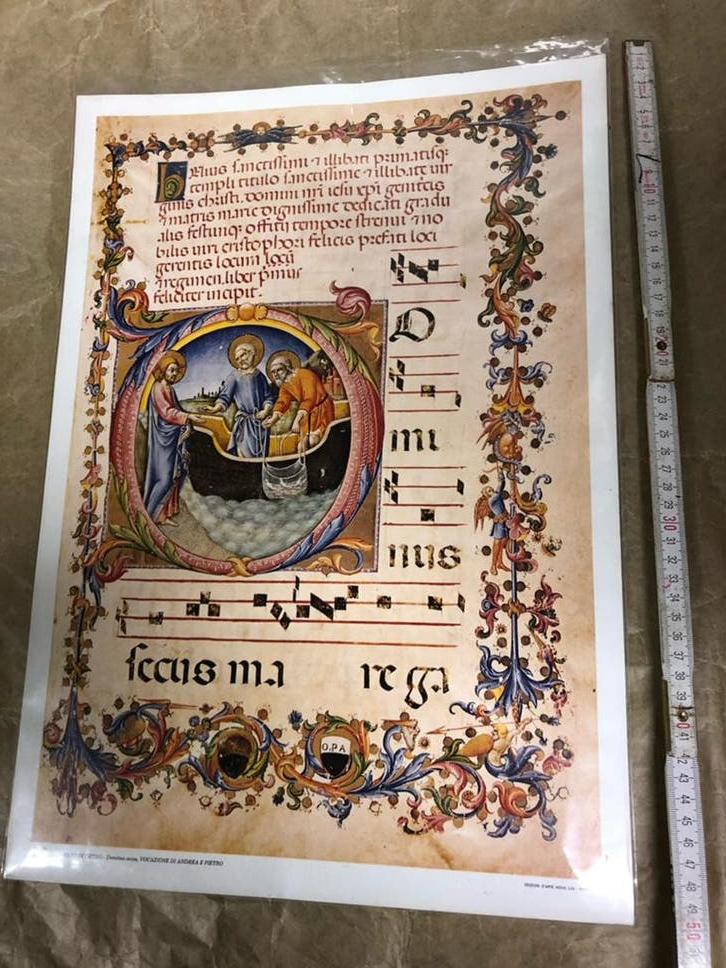 Prius sanctissimi ⁊ illibati primatisq;
templi titulo sanctissime ⁊ illibate vir
ginis christi. domini nr̄i iesu xp̄i genitris
⁊ matris marie dignissime dedicati gradu
alis festiuiq; offitij tempore strenui ⁊ no
bilis uiri cristophori felicis prefati loci
gerentis locum
⁊ regimen. liber primus
feliciter incipit.
D
mi
nus
secus ma re ga
O.P.A
Dominus secus, VOCAZIONE DI ANDREA E PIETRO
EDIZIONI D'ARTE
10 11 12 13 14 15 16 17 18 19 20 21 22 23 24 25 26 27 28 29 30 31 32 33 34 35 36 37 38 39 40 41 42 43 44 45 46 47 48 49 50